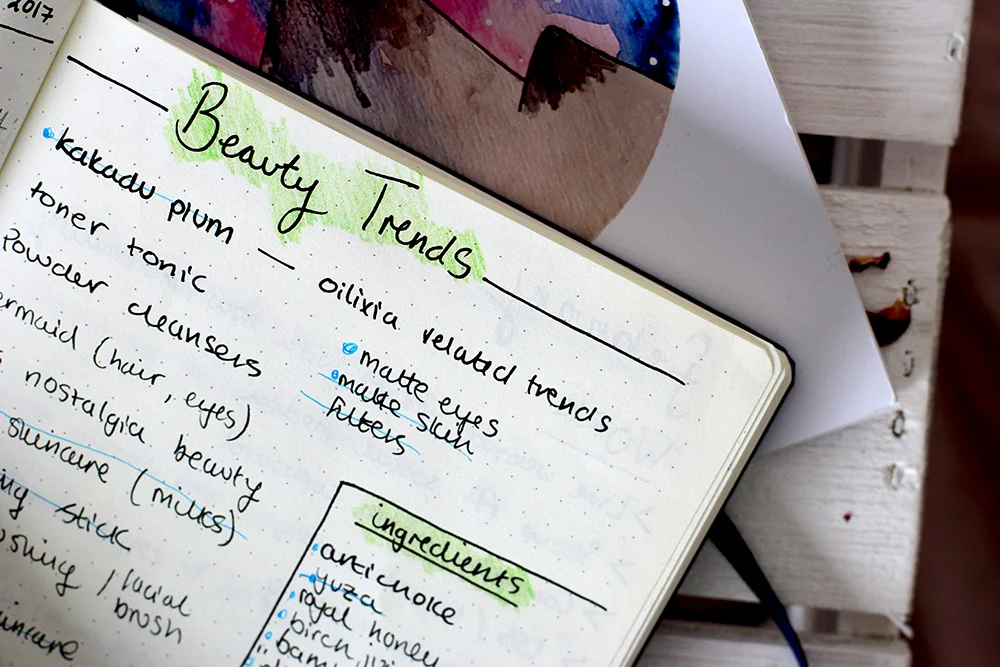 2017
Beauty Trends
kakadu plum
toner tonic
Powder cleansers
(hair, eyes)
nostalgia beauty
skincare (milks)
stick
/facial
brush
skincare
oilixia related trends
matte eyes
matte skin
filters
ingredients
artichoke
yuzu
royal honey
birch